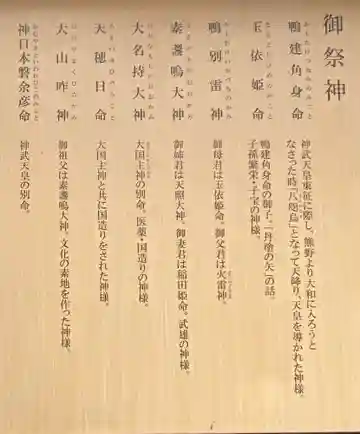 御祭神
鴨建角身命
神武天皇東征に際し、熊野より大和に入ろうと
なさった時、「八咫烏」となって天降り、天皇を導かれた神様。
玉依姫命
鴨建角身命の御子。「丹塗の矢」の話。
子孫繁栄・子宝の神様。
鴨別雷神
御母君は玉依姫命。御父君は火雷神。
素盞嗚大神
御姉君は天照大神。御妻君は稲田姫命。武雄の神様。
大名持大神
大国主神の別命。医薬・国造りの神様。
天穂日命
大国主神と共に国造りをされた神様。
大山咋神
御祖父は素盞嗚大神。文化の素地を作った神様。
神日本磐余彦命
神武天皇の別命。